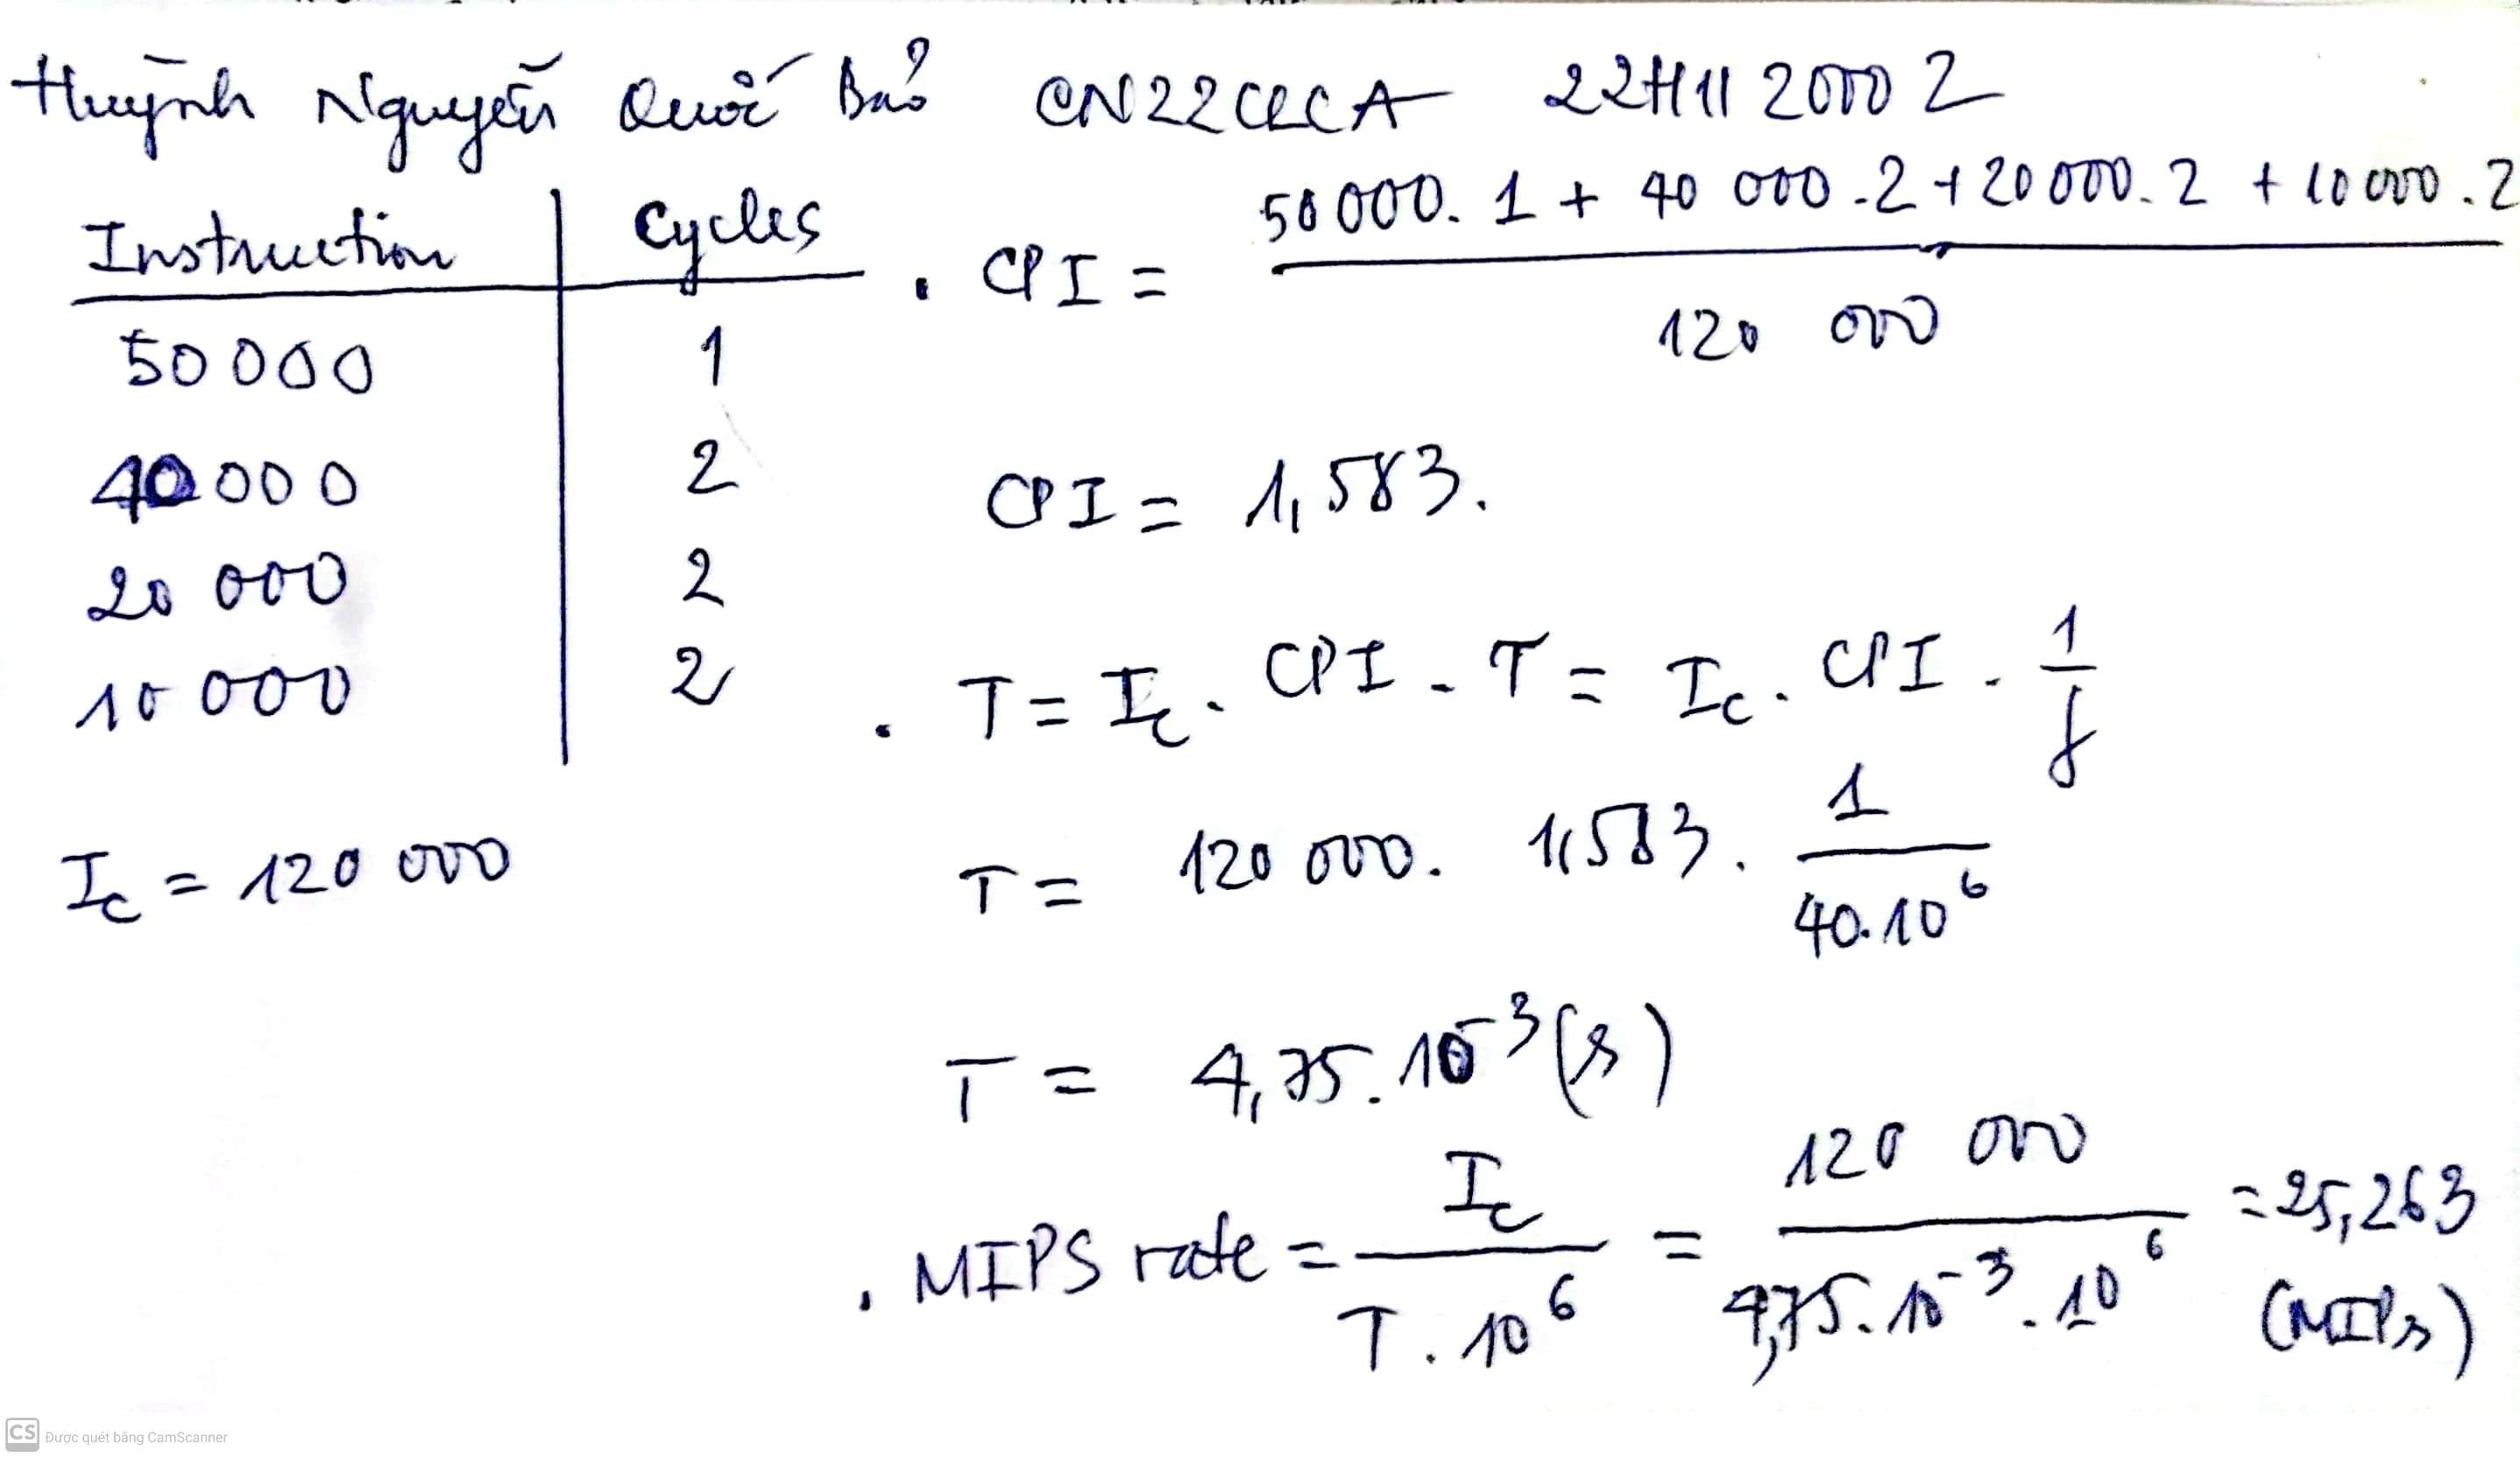 Huỳnh Nguyễn Quốc Bảo CN22CLCA 22H1120002
Instruction | Cycles
50 000 | 1
40 000 | 2
20 000 | 2
10 000 | 2
Ic = 120 000
. CPI = (50 000. 1 + 40 000.2 + 20 000. 2 + 10 000. 2) / 120 000
CPI = 1,583.
. T = Ic. CPI. T = Ic. CPI. 1/f
T = 120 000. 1,583. 1/(40.10^6)
T = 4,75. 10^-3 (s)
. MIPS rate = Ic/(T. 10^6) = 120 000/(4,75. 10^-3. 10^6) = 25,263
(MIPs)
CS Được quét bằng CamScanner